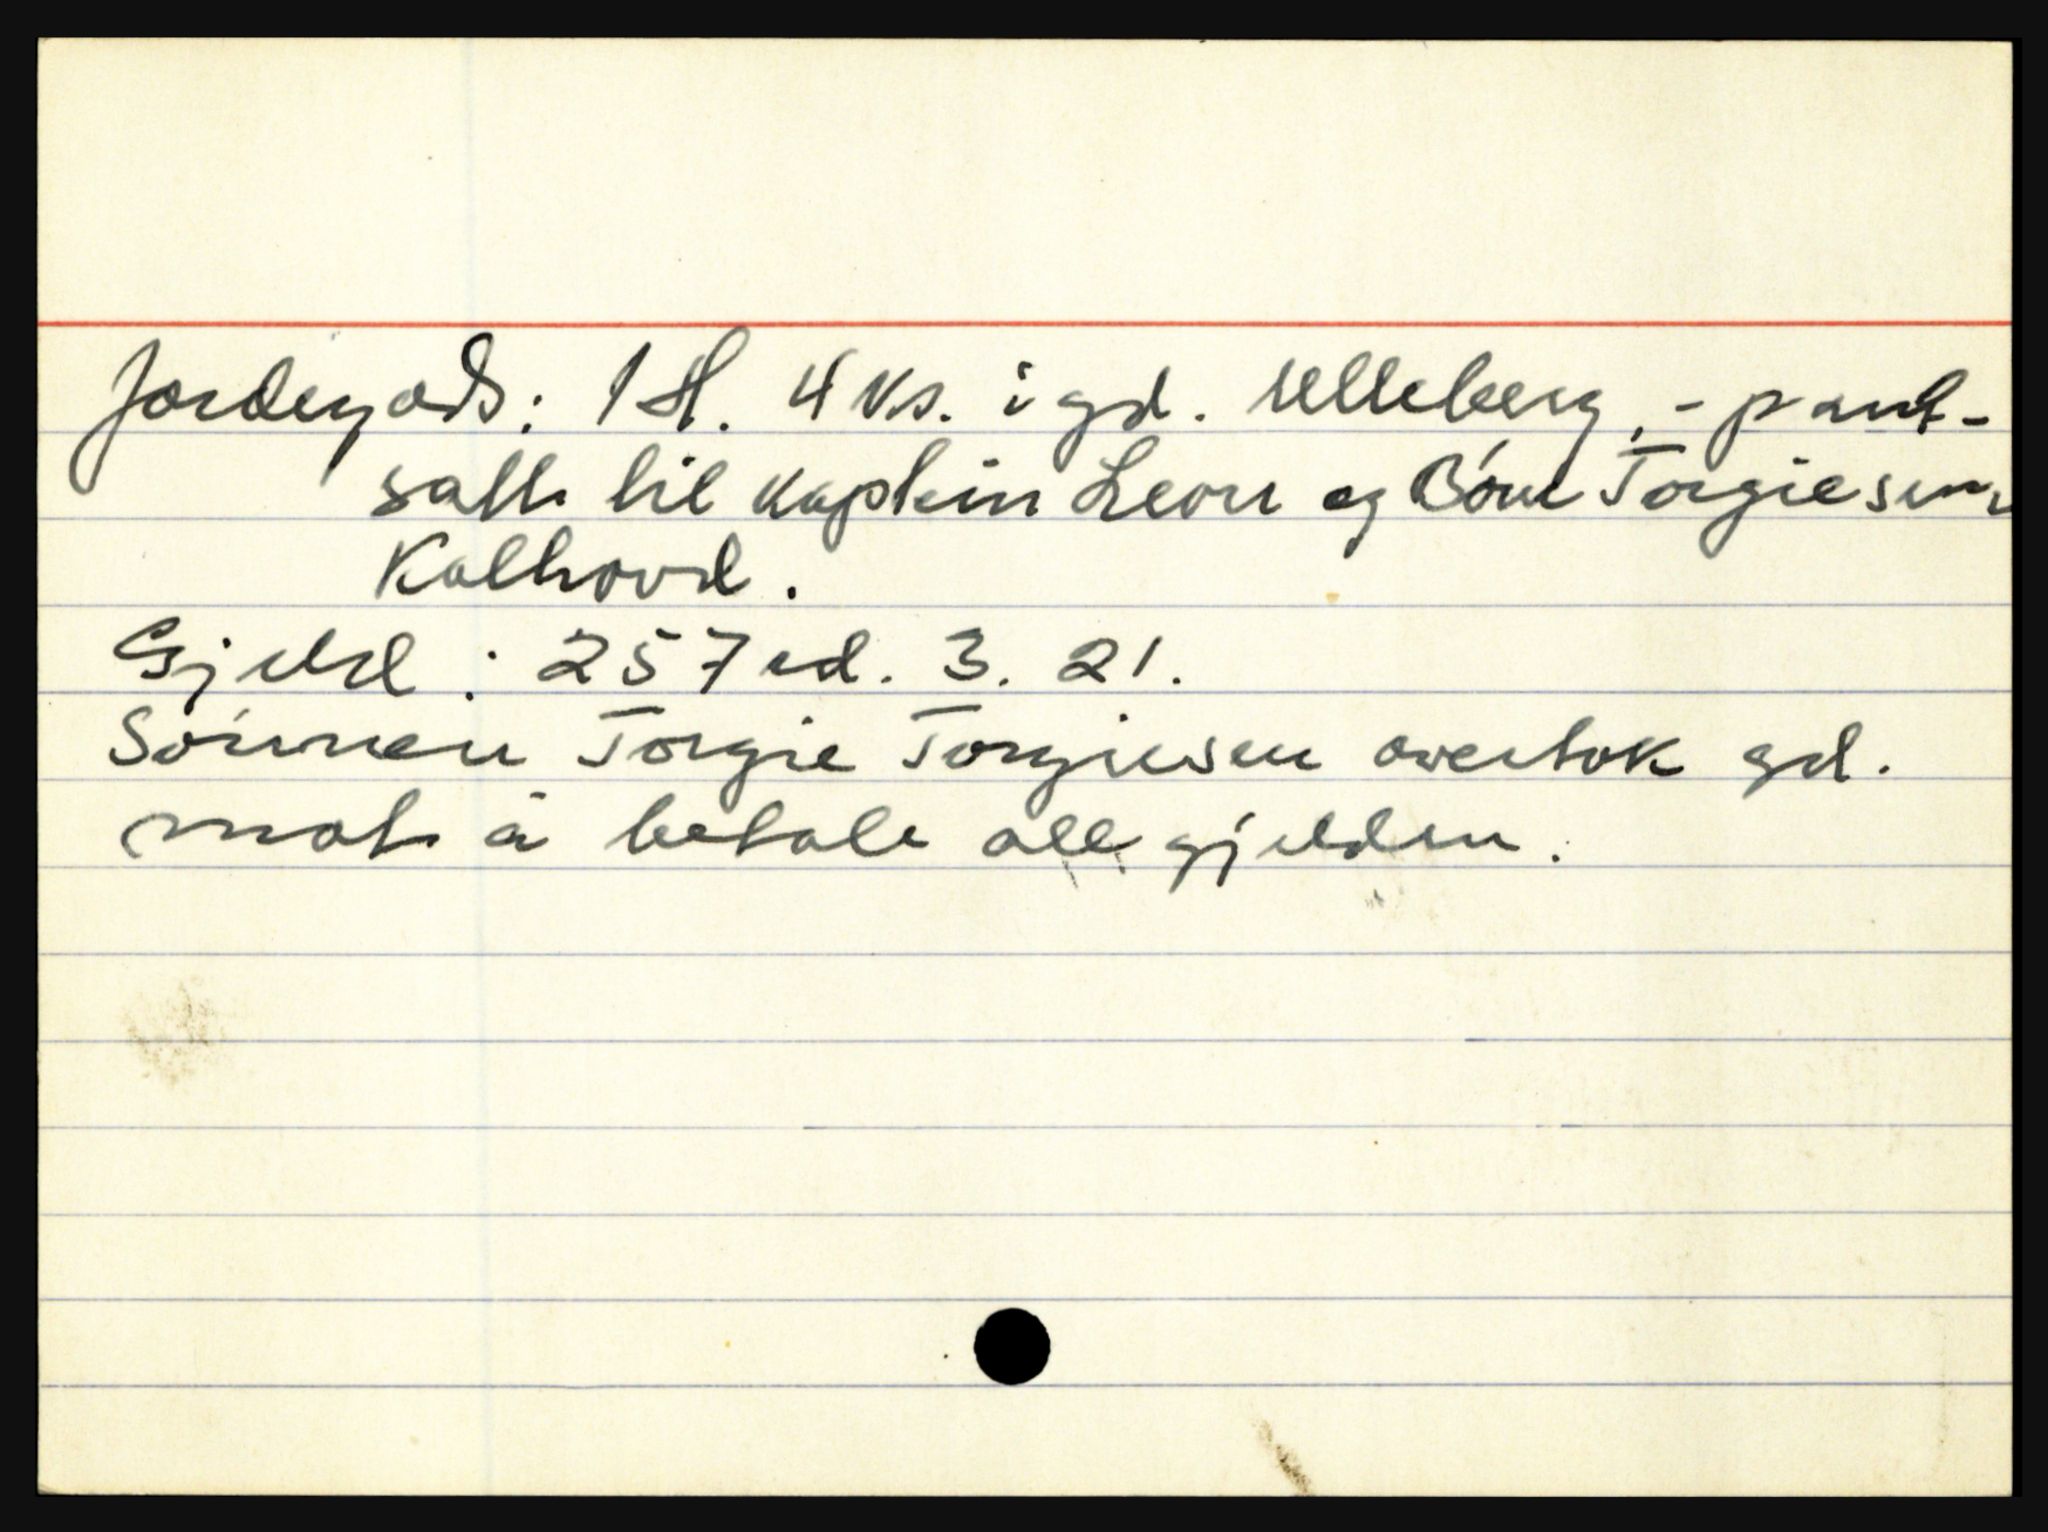 Jordegods: 1 H. 4 ks. i gd. Ulleberg, - pant-
satt til kaptein Leon og Bóm Torgiesen,
Kalhovd.
Gjeld: 257 rd. 3. 21.
Sónnen Torgie Torgiesen overtok gd.
mot å betale all gjelden.